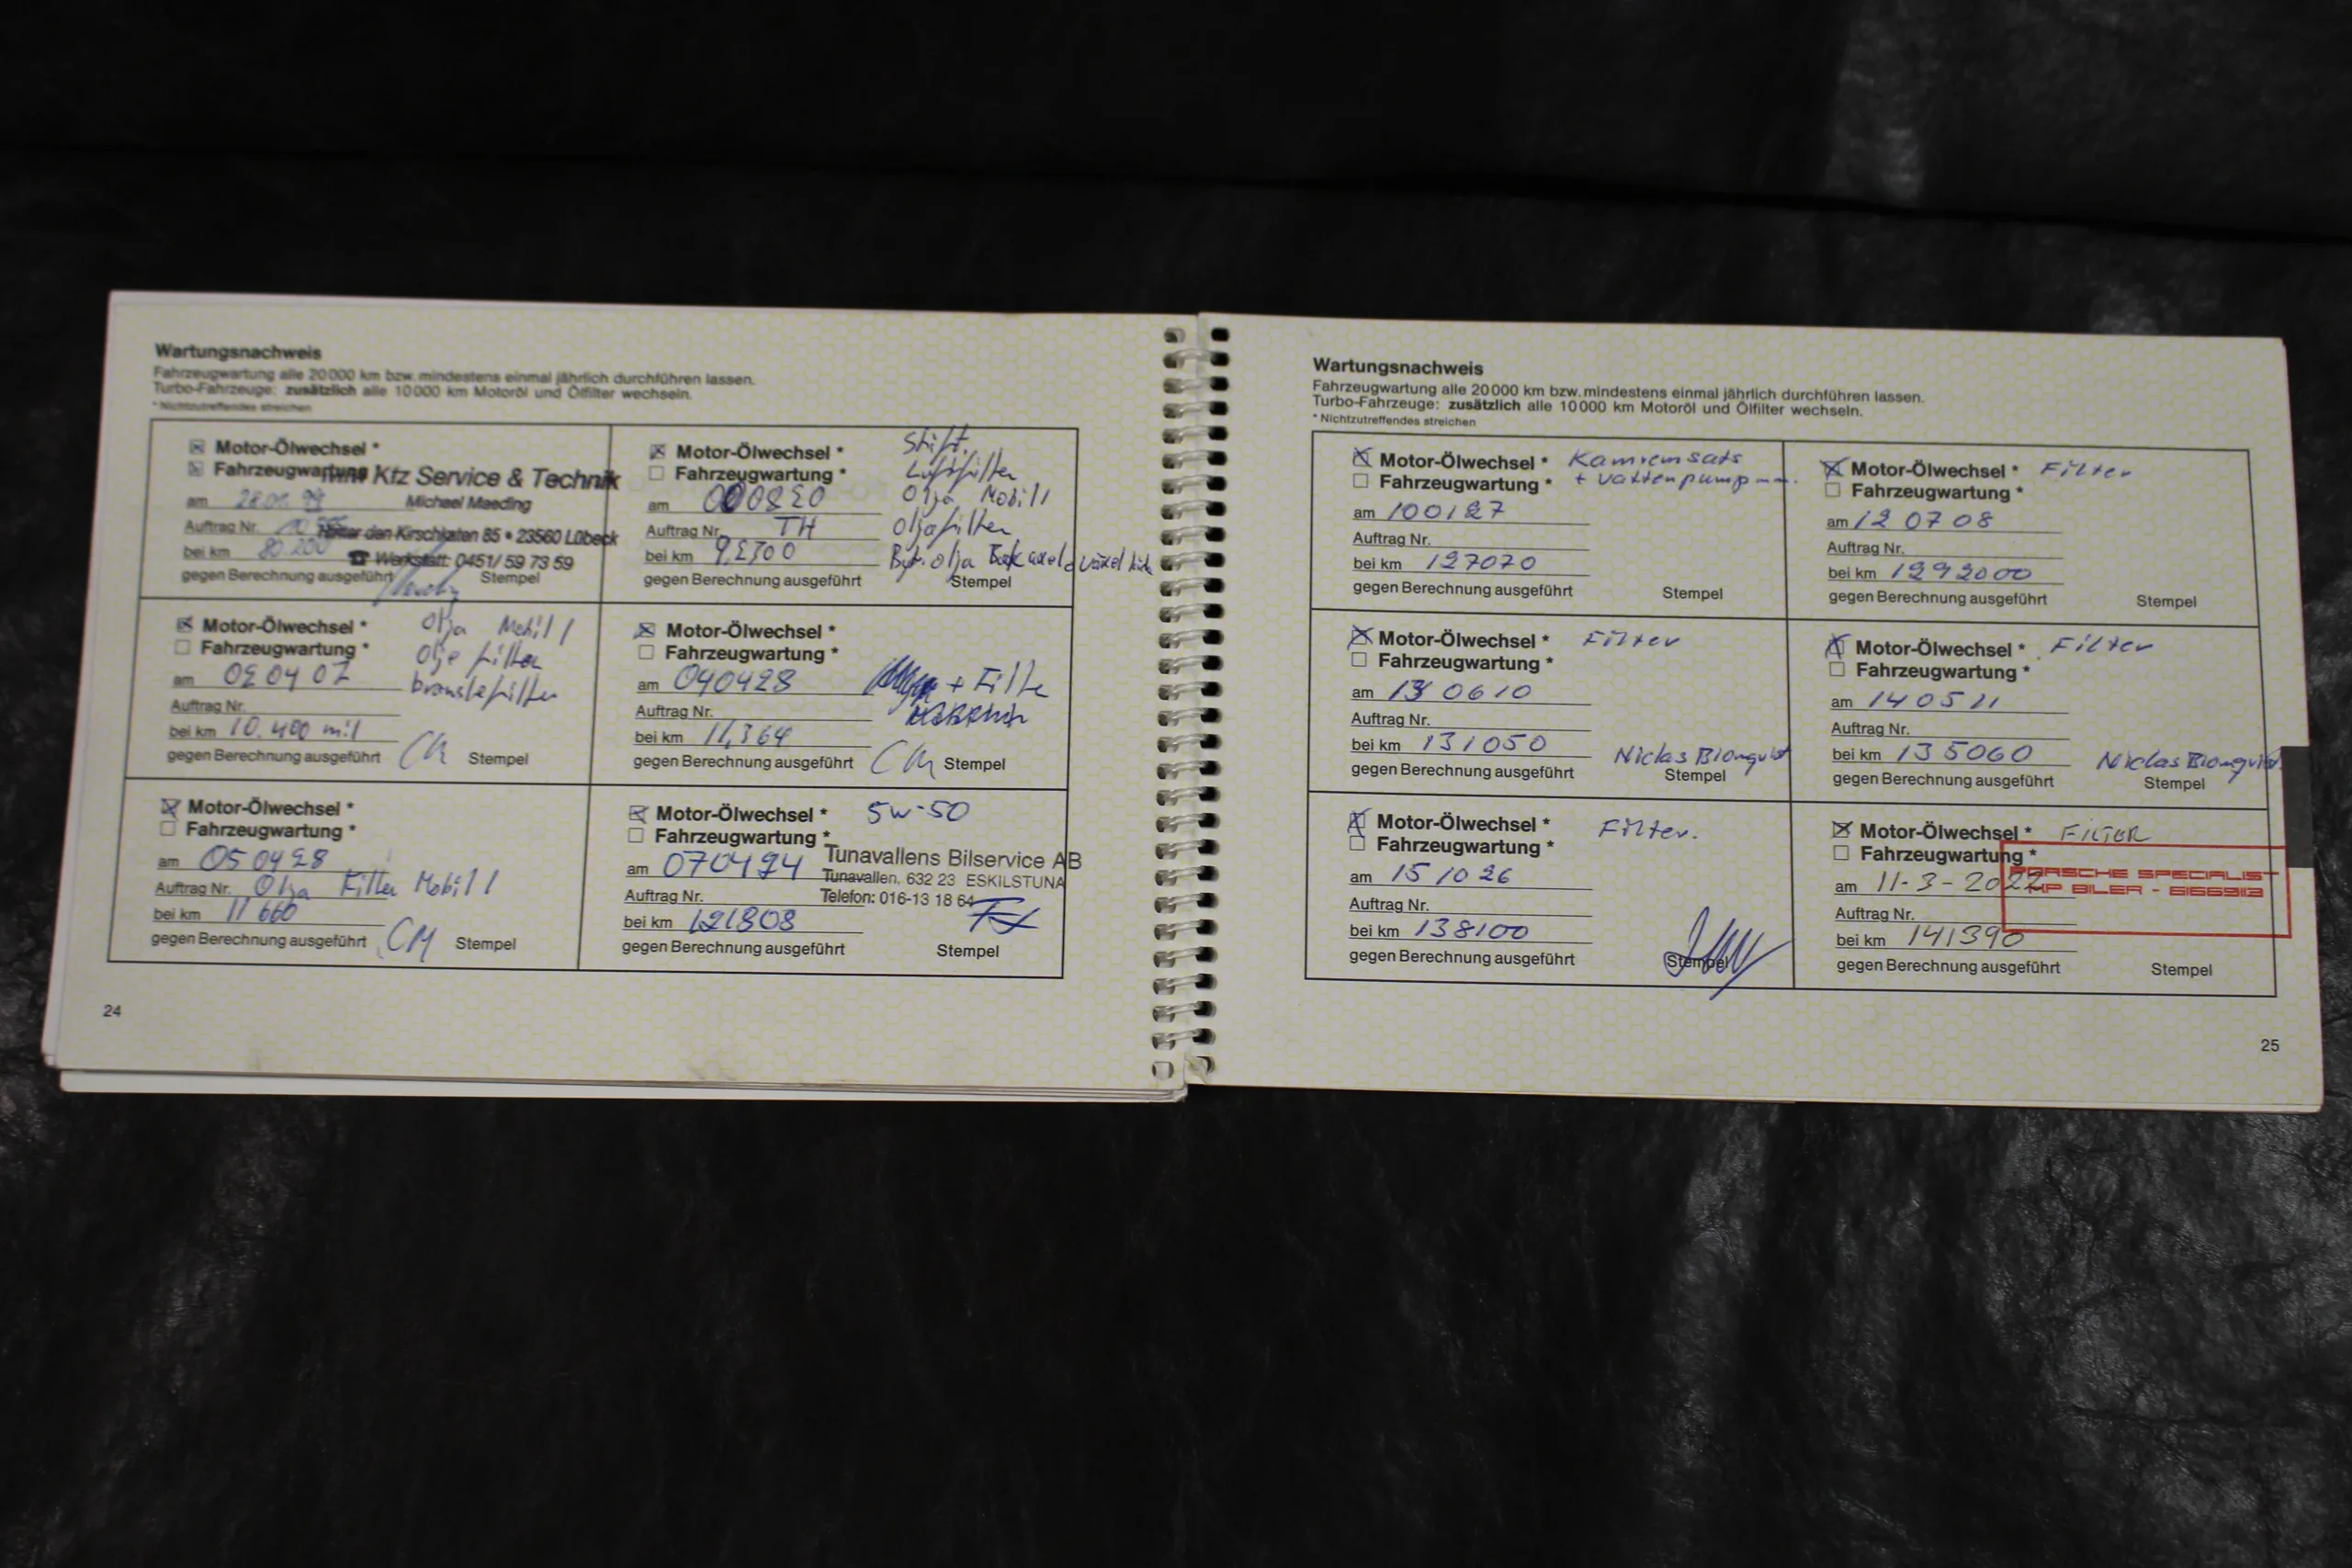 Wartungsnachweis
Fahrzeugwartung alle 20000 km bzw. mindestens einmal jährlich durchführen lassen.
Turbo-Fahrzeuge: zusätzlich alle 10000 km Motoröl und Ölfilter wechseln.
* Nichtzutreffendes streichen
Motor-Ölwechsel *
Fahrzeugwartung
Kfz Service & Technik
am
Michael Maeding
Auftrag Nr.
Hinter den Kirschkaten 85 • 23560 Lübeck
bei km 80.200
Werkstatt: 0451/ 59 73 59
gegen Berechnung ausgeführt
Stempel
Motor-Ölwechsel * Stift.
Fahrzeugwartung * Luftfilter
am 000820 Olja Mobil 1
Auftrag Nr. TH Oljafilter
bei km Byt. olja
gegen Berechnung ausgeführt Stempel
Motor-Ölwechsel * Olja Mobil 1
Fahrzeugwartung * Olje filter
am bränslefilter
Auftrag Nr.
bei km 10.400 mil
gegen Berechnung ausgeführt Stempel
Motor-Ölwechsel *
Fahrzeugwartung *
am 040428 + Filte
Auftrag Nr.
bei km 11,364
gegen Berechnung ausgeführt CM Stempel
Motor-Ölwechsel *
Fahrzeugwartung *
am 050428
Auftrag Nr. Olja Filter Mobil 1
bei km 11 660
gegen Berechnung ausgeführt CM Stempel
Motor-Ölwechsel * 5W-50
Fahrzeugwartung *
Tunavallens Bilservice AB
am
Tunavallen, 632 23 ESKILSTUNA
Auftrag Nr.
Telefon: 016-13 18 64
bei km 121808
gegen Berechnung ausgeführt Stempel
24
Wartungsnachweis
Fahrzeugwartung alle 20000 km bzw. mindestens einmal jährlich durchführen lassen.
Turbo-Fahrzeuge: zusätzlich alle 10000 km Motoröl und Ölfilter wechseln.
* Nichtzutreffendes streichen
Motor-Ölwechsel * Kamremsats
Fahrzeugwartung * + vattenpump
am 100127
Auftrag Nr.
bei km 127070
gegen Berechnung ausgeführt Stempel
Motor-Ölwechsel * Filter
Fahrzeugwartung *
am 120708
Auftrag Nr.
bei km 1292000
gegen Berechnung ausgeführt Stempel
Motor-Ölwechsel * Filter
Fahrzeugwartung *
am 130610
Auftrag Nr.
bei km 131050 Niclas Blomqvist
gegen Berechnung ausgeführt Stempel
Motor-Ölwechsel * Filter
Fahrzeugwartung *
am 140511
Auftrag Nr.
bei km 135060 Niclas Blomqvist
gegen Berechnung ausgeführt Stempel
Motor-Ölwechsel * Filter.
Fahrzeugwartung *
am 15 10 26
Auftrag Nr.
bei km 138100
gegen Berechnung ausgeführt Stempel
Motor-Ölwechsel * FILTER
Fahrzeugwartung *
PORSCHE SPECIALIST
am 11-3-2022
BILER
Auftrag Nr.
bei km 141390
gegen Berechnung ausgeführt Stempel
25